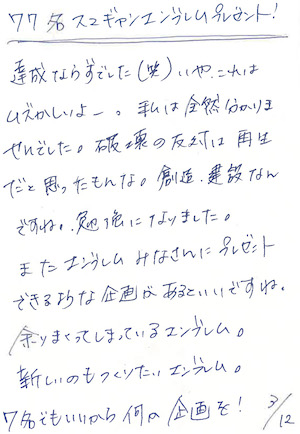 77名スマギャンエンブレムプレゼント!
達成ならずでした(笑)いや、これは
ムズかしいよー。私は全然分かりま
せんでした。破壊の反対は再生
だと思ったもんな。創造、建設なん
ですね。勉強になりました。
またエンブレムみなさんにプレゼント
できるような企画があるといいですね。
余りまくってしまっているエンブレム。
新しいのもつくりたいエンブレム。
7名でもいいから何か企画を!
3/12